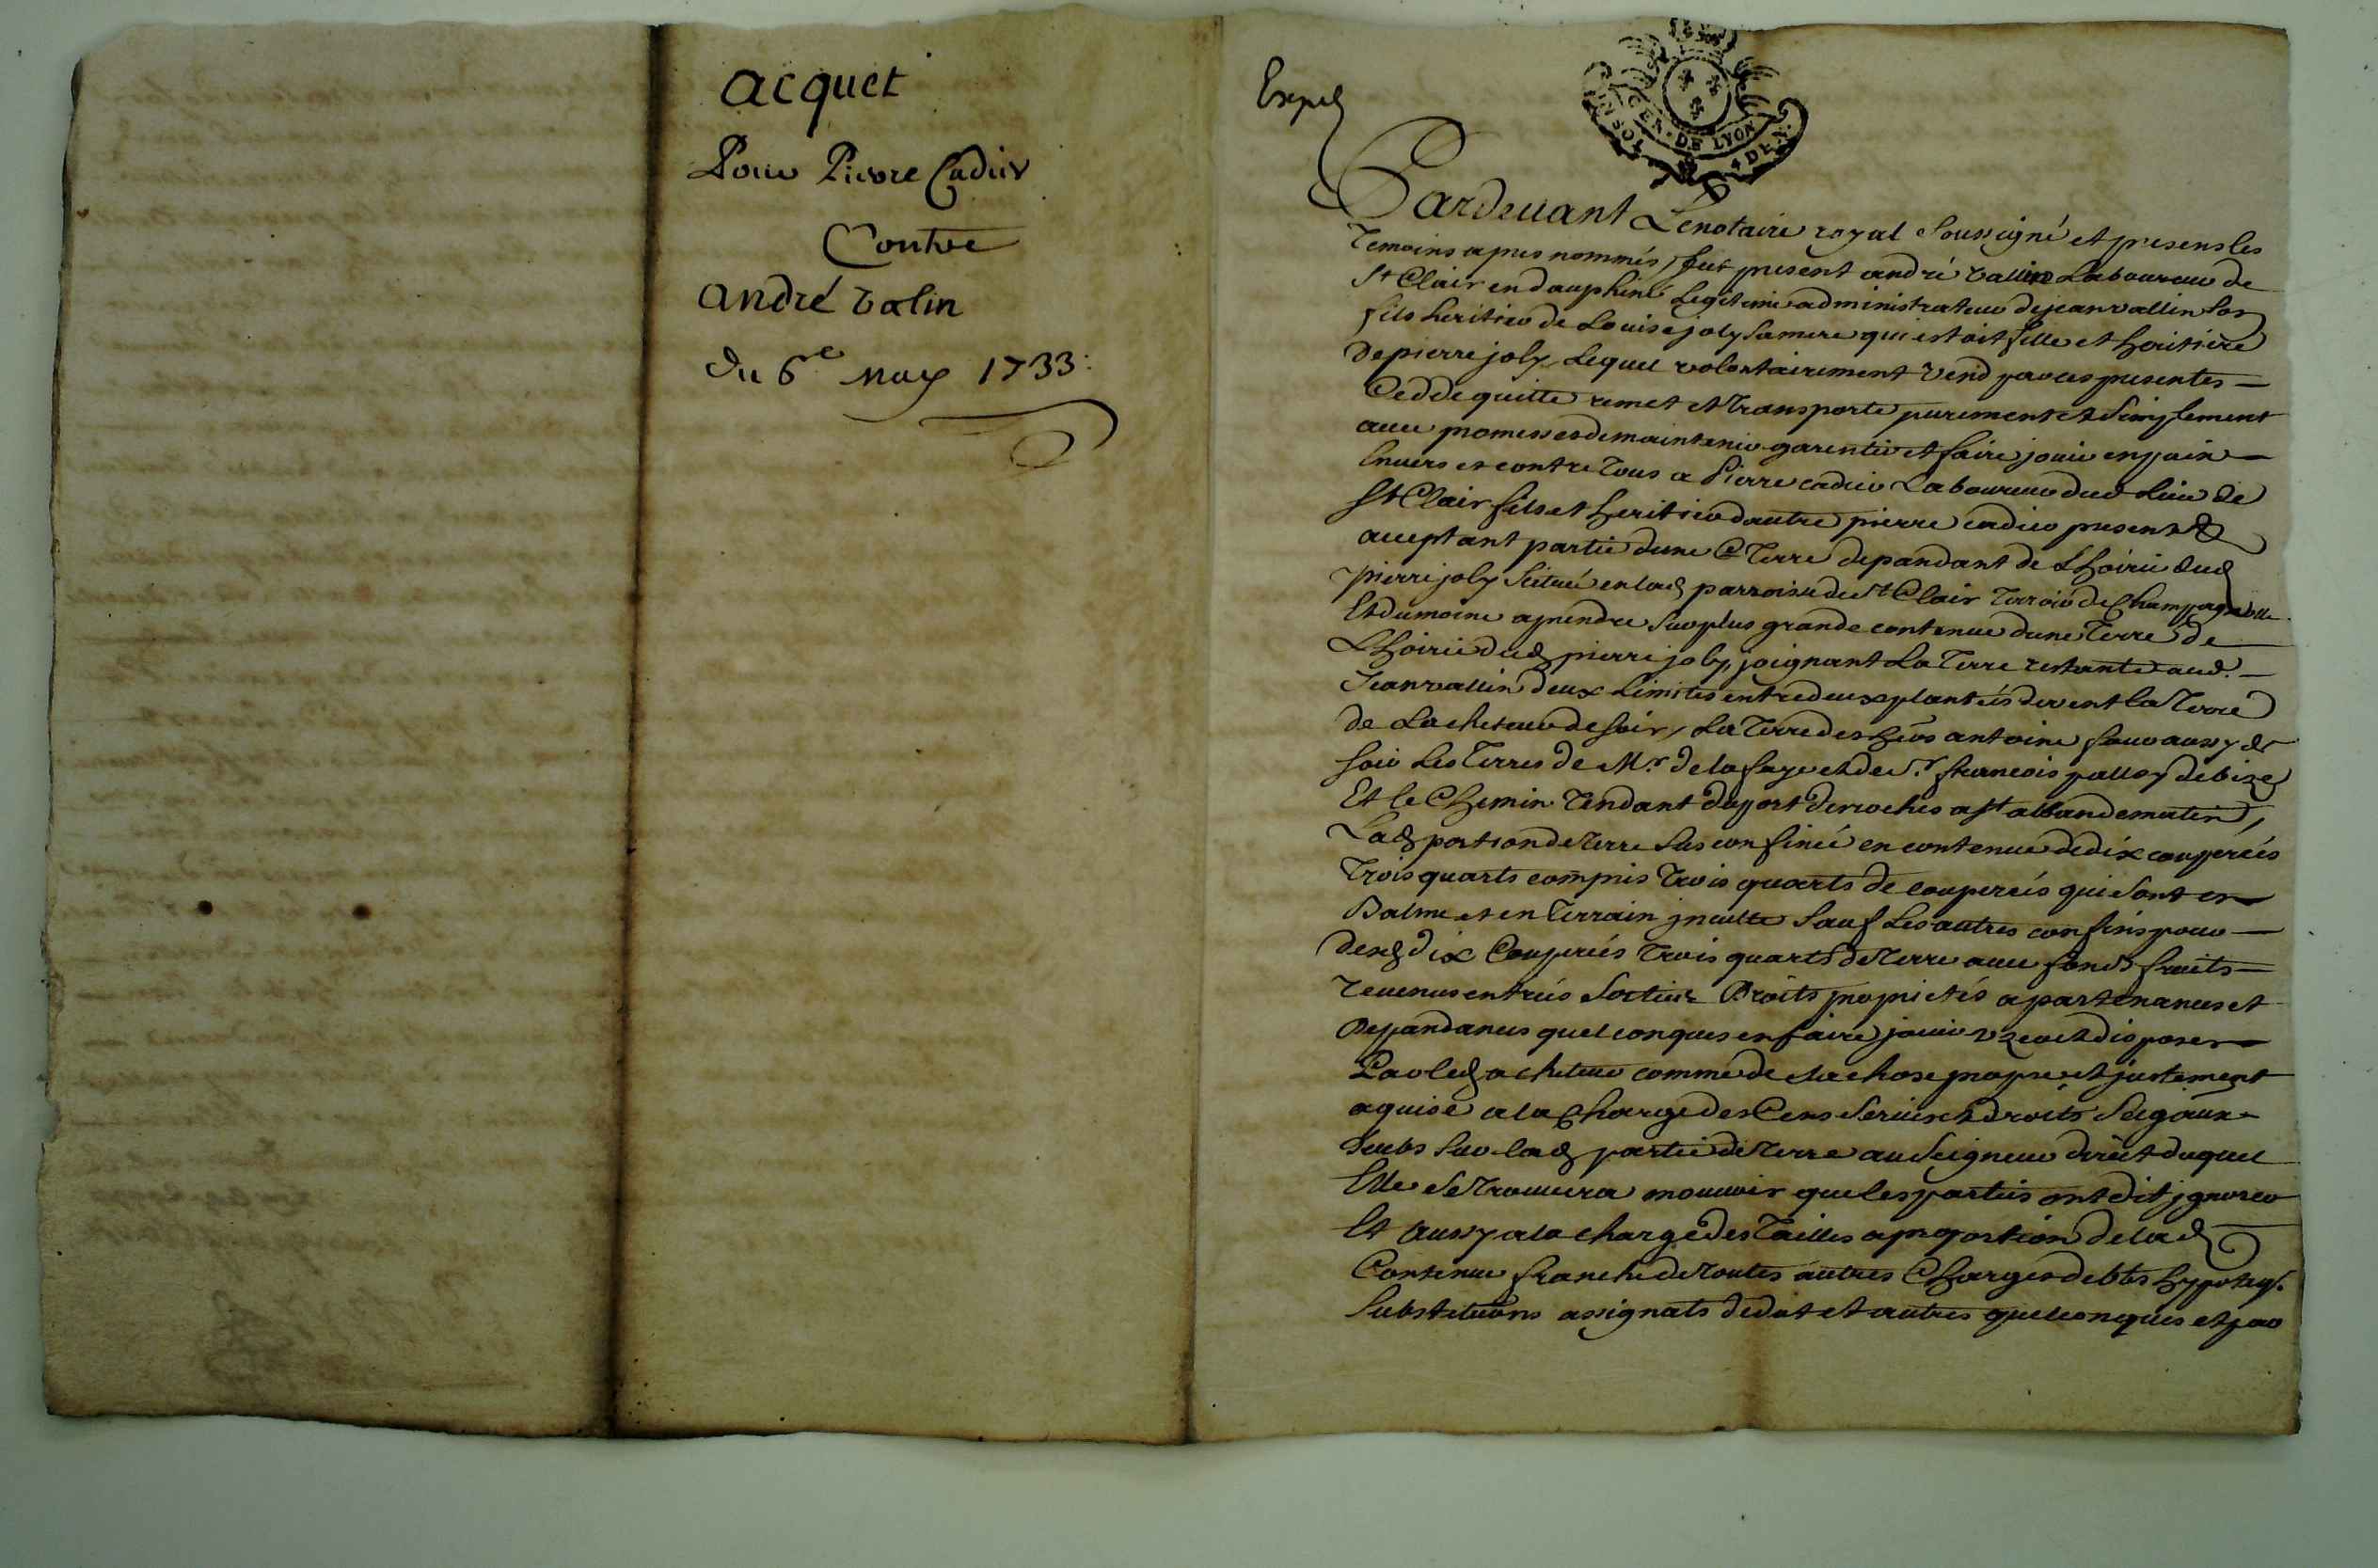 acquet
Pour Pierre Cadier
Contre
andré valin
du 6e may 1733:
Exped
GEN. DE LYON
4 DEN.
Pardeuant Lenotaire royal Soussigné et presens les
Temoins apres nommés, fut present andré vallin Laboureur de
St Clair en dauphiné Legitime administrateur de jean vallin son
fils heritier de Louise joly Samere qui estoit fille et heritiere
de pierre joly, Lequel volontairement vend par ces presentes
Cedde quitte remet et Transporte purement et Simplement
auec promesses de maintenir garentir et faire jouir en paix
Enuers et contre Tous a Pierre cadier Laboureur dud Lieu de
St Clair fils et heritier dautre pierre cadier present &
acceptant partie dune Terre depandant de Lhoirie dud
pierre joly Scituée en lad parroisse de St Clair Terroir de Champagnolle
Et du moins a prendre Sur plus grande contenue dune Terre de
Lhoirie dud pierre joly, joignant La Terre restante aud.
Jean vallin deux Limites entredeux plantées de vent la Terre
de Lacheteur de Soir, La Terre des hers antoine faure aussy de
Soir Les Terres de Mr. de la faye et de Sr. francois palloy de bize
Et le Chemin Tendant du port de roches a St alban de matin,
Lad portion de Terre Sus confinée en contenue de dix couperées
Trois quarts compris Trois quarts de couperées qui Sont en
Balme et en Terrain jnculte Sauf Les autres confins pour
desd dix Couperées Trois quarts de Terre auec fonds fruits
reuenus entrées Sorties Droits proprietés apartenances et
Depandances quelconques en faire jouir vzer et disposer
Par led acheteur comme de Sa chose propre et justement
aquise a la Charge des Cens Seruis et droits Seigaux
deubs Sur lad partie de Terre au Seigneur direct duquel
Elle Se Trouuera mouuoir que les parties ont dit jgnorer
Et aussy a la charge des Tailles a proportion de lad
Contenue franche de Toutes autres Charges debtes hypoteqs.
Substitutions assignats de dot et autres quelconques et par